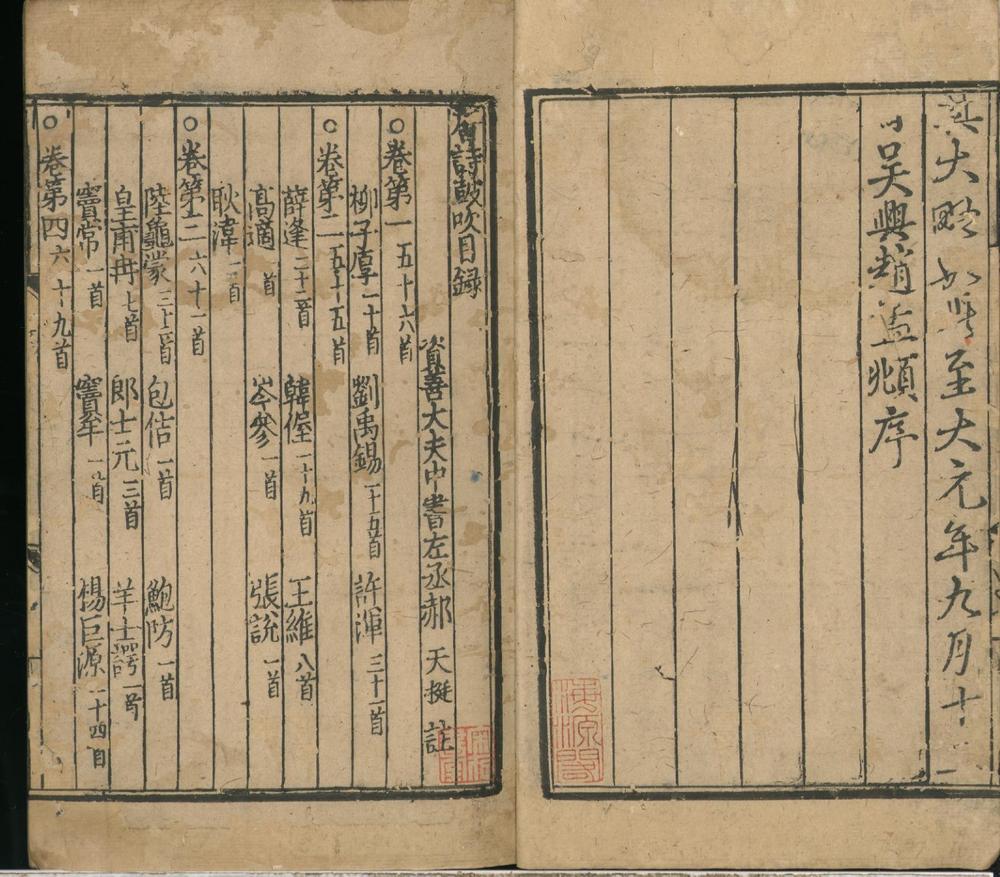 其大略如此至大元年九月十二
日吳興趙孟頫序
海源閣
唐詩鼓吹目錄
資善大夫中書左丞郝天挺註
○卷第一 五十六首
柳子厚 一十首 劉禹錫 一十五首 許渾 三十一首
○卷第二 五十五首
薛逢 二十二首 韓偓 一十九首 王維 八首
高適 一首 岑參 一首 張說 一首
耿湋 一首
○卷第三 六十一首
陸龜蒙 三十五首 包佶 一首 鮑防 一首
皇甫冉 七首 郎士元 三首 羊士諤 一首
竇常 一首 竇牟 一首 楊巨源 一十四首
○卷第四 六十九首